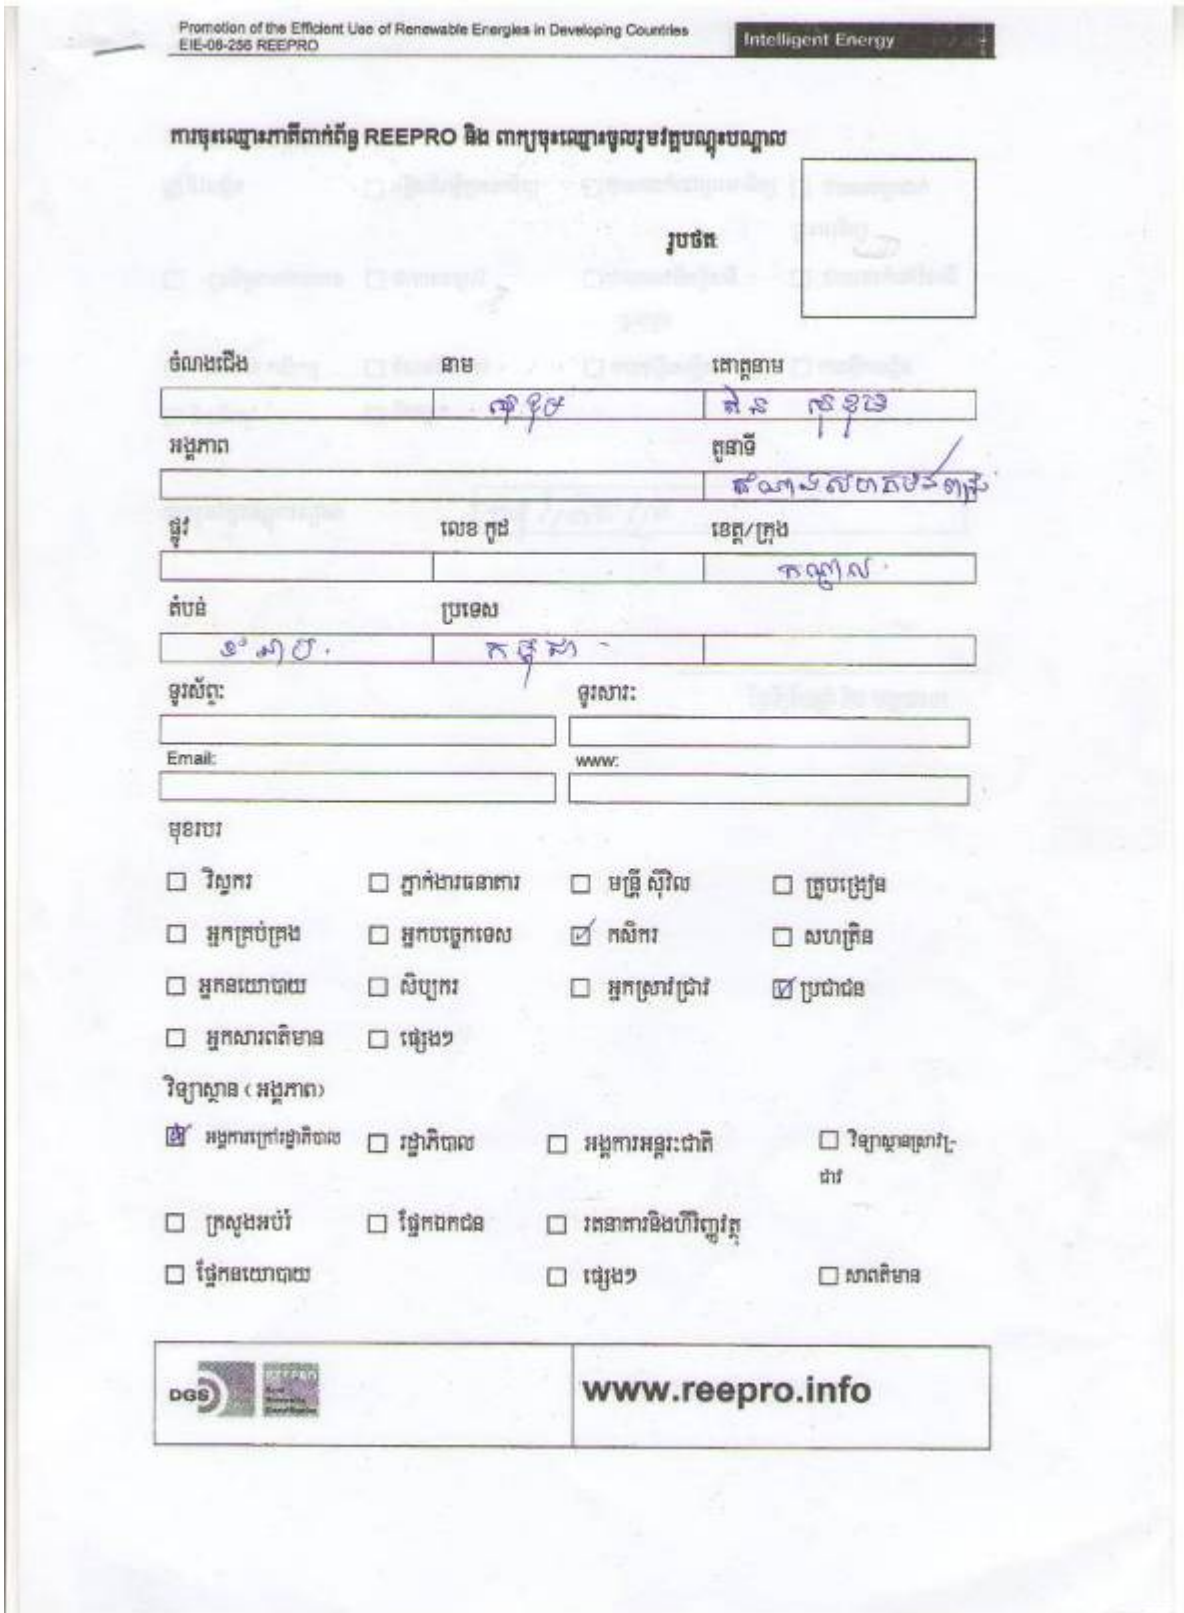 Promotion of the Efficient Use of Renewable Energies in Developing Countries
EIE-06-256 REEPRO
Intelligent Energy
ការចុះឈ្មោះភាគីពាក់ព័ន្ធ REEPRO និង ពាក្យចុះឈ្មោះចូលរួមវគ្គបណ្តុះបណ្តាល
រូបថត
ចំណងជើង នាម គោត្តនាម
សុខុម សុខុម
អង្គភាព តួនាទី
តំណាងសហគមន៍
ផ្លូវ លេខ កូដ ខេត្ត/ក្រុង
កណ្តាល
តំបន់ ប្រទេស
ទំនាប កម្ពុជា
ទូរស័ព្ទ: ទូរសារ:
Email: www:
មុខរបរ
វិស្វករ ភ្នាក់ងារធនាគារ មន្ត្រី ស៊ីវិល គ្រូបង្រៀន
អ្នកគ្រប់គ្រង អ្នកបច្ចេកទេស កសិករ សហគ្រិន
អ្នកនយោបាយ សិប្បករ អ្នកស្រាវជ្រាវ ប្រជាជន
អ្នកសារពត៌មាន ផ្សេងៗ
វិទ្យាស្ថាន (អង្គភាព)
អង្គការក្រៅរដ្ឋាភិបាល រដ្ឋាភិបាល អង្គការអន្តរៈជាតិ វិទ្យាស្ថានស្រាវ្រ-
ជាវ
ក្រសួងអប់រំ ផ្នែកឯកជន រតនាគារនិងហិរិញ្ញវត្ថុ
ផ្នែកនយោបាយ ផ្សេងៗ សាពត៌មាន
DGS
www.reepro.info